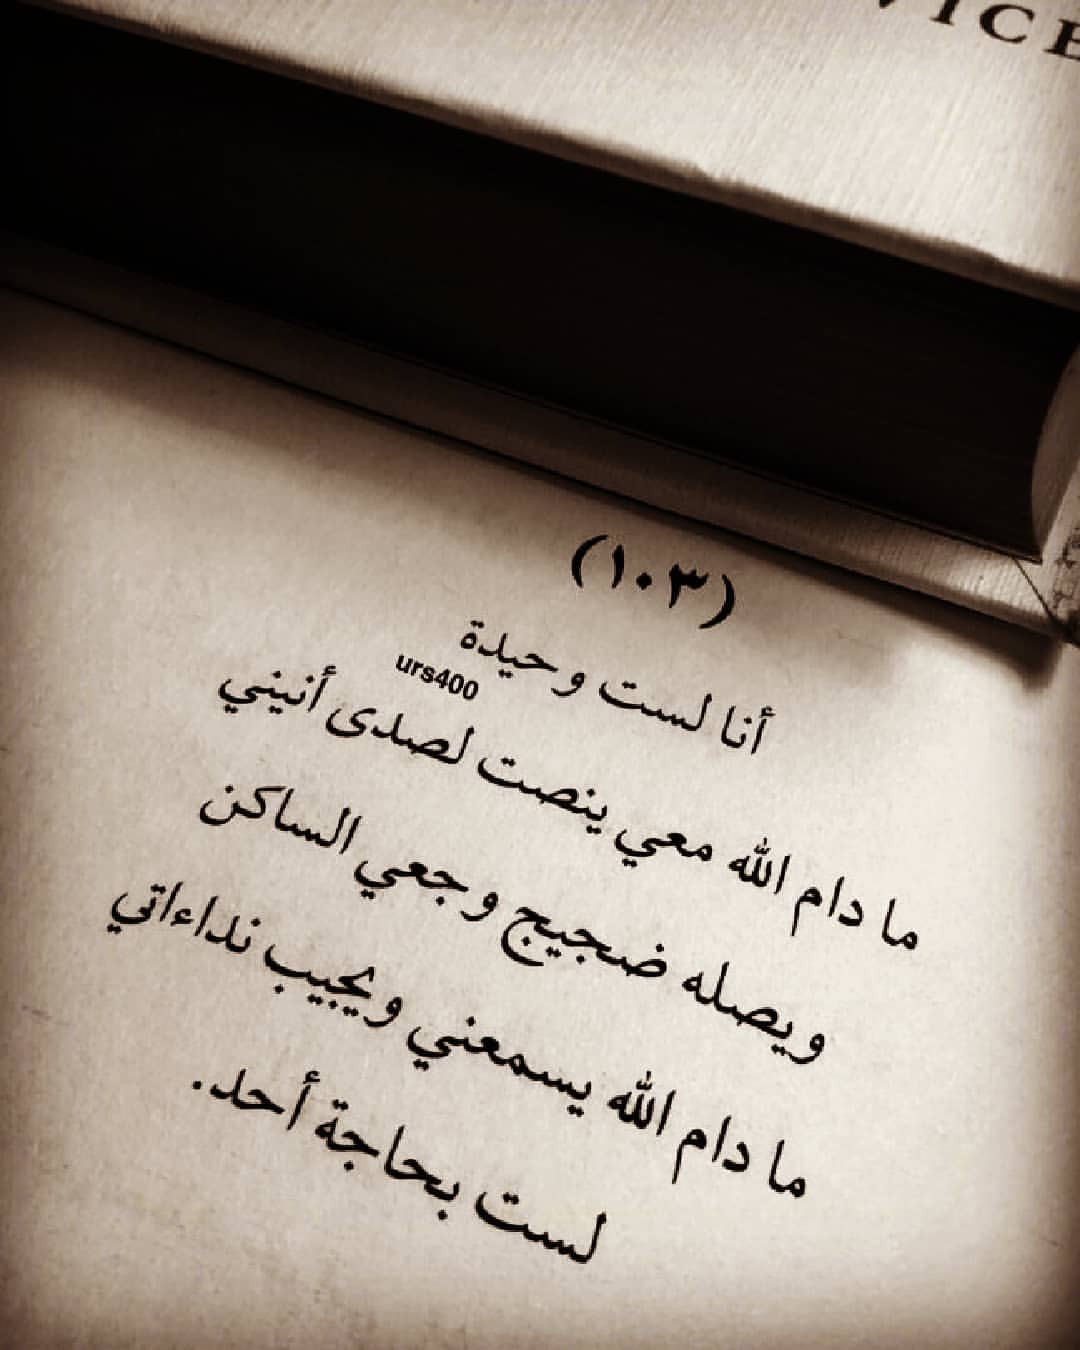 VICE
(١٠٣)
أنا لست وحيدة
urs400
ما دام الله معي ينصت لصدى أنيني
ويصله ضجيج وجعي الساكن
ما دام الله يسمعني ويجيب نداءاتي
لست بحاجة أحد.